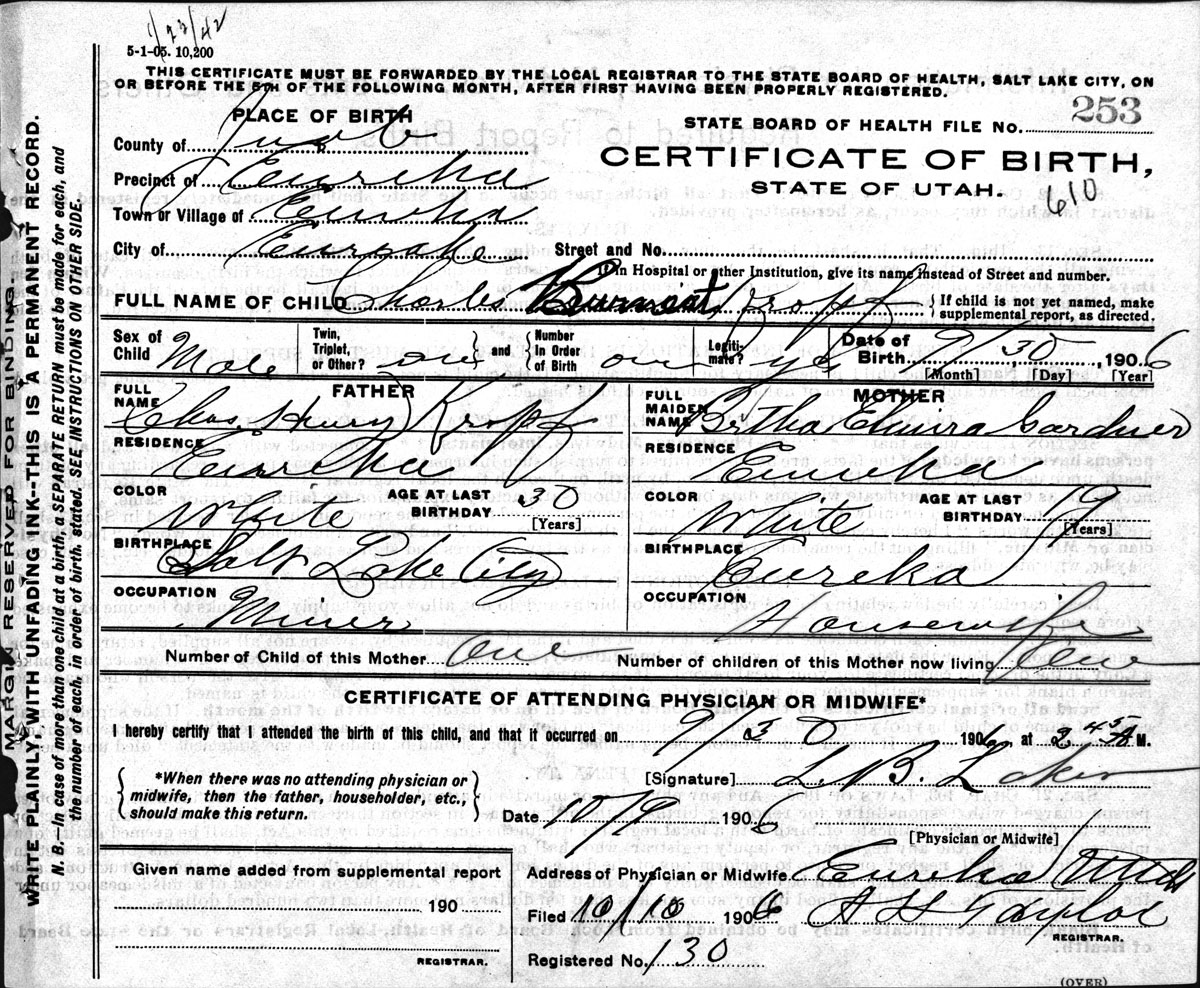 1/23/42
5-1-05. 10,200
THIS CERTIFICATE MUST BE FORWARDED BY THE LOCAL REGISTRAR TO THE STATE BOARD OF HEALTH, SALT LAKE CITY, ON
OR BEFORE THE 5TH OF THE FOLLOWING MONTH, AFTER FIRST HAVING BEEN PROPERLY REGISTERED.
PLACE OF BIRTH
STATE BOARD OF HEALTH FILE NO. 253
County of Juab
CERTIFICATE OF BIRTH,
Precinct of Eureka
STATE OF UTAH.
610
Town or Village of Eureka
City of Street and No.
If in Hospital or other Institution, give its name instead of Street and number.
FULL NAME OF CHILD Charles Kropf
If child is not yet named, make
supplemental report, as directed.
Sex of Child Male Twin, Triplet, or Other? one and Number in Order of Birth one Legiti-mate? yes Date of Birth 9/30, 1906
[Month] [Day] [Year]
FATHER
FULL NAME Chas Henry Kropf
RESIDENCE Eureka
COLOR White AGE AT LAST BIRTHDAY 30
[Years]
BIRTHPLACE Salt Lake City
OCCUPATION Miner
MOTHER
FULL MAIDEN NAME Bertha Elmira Gardner
RESIDENCE Eureka
COLOR White AGE AT LAST BIRTHDAY 19
[Years]
BIRTHPLACE Eureka
OCCUPATION Housewife
Number of Child of this Mother One Number of children of this Mother now living One
CERTIFICATE OF ATTENDING PHYSICIAN OR MIDWIFE*
I hereby certify that I attended the birth of this child, and that it occurred on 9/30 1906, at 2 45 A M.
*When there was no attending physician or
midwife, then the father, householder, etc.,
should make this return.
[Signature] L. B. Laker
Date 10/9 1906
[Physician or Midwife]
Given name added from supplemental report
190
REGISTRAR.
Address of Physician or Midwife Eureka Utah
Filed 10/10 1906 A H Taylor
REGISTRAR.
Registered No. 130
(OVER)
MARGIN RESERVED FOR BINDING.
WRITE PLAINLY WITH UNFADING INK--THIS IS A PERMANENT RECORD.
N. B. In case of more than one child at a birth, a SEPARATE RETURN must be made for each, and
the number of each, in order of birth, stated. SEE INSTRUCTIONS ON OTHER SIDE.